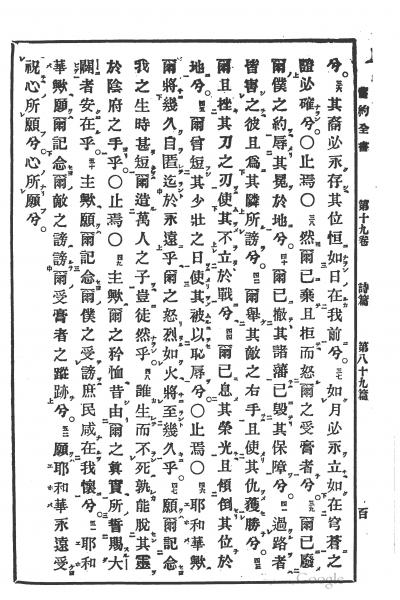 舊約全書 第十九卷 詩篇 第八十九篇 百
兮。三六其裔必永存其位恒如日在我前兮。三七如月必永立如在穹蒼之
證必確兮。〇止焉〇三八然爾已棄且拒而怒爾之受膏者兮。三九爾已廢
爾僕之約辱其冕於地兮。四十爾已撤其諸藩已毀其保障兮。四一過路者
皆害之彼且爲其隣所謗兮。四二爾舉其敵之右手且使其仇獲勝兮。四三
爾且挫其刀之刃使其不立於戰兮。四四爾已息其榮光且傾倒其位於
地兮。四五爾曾短其少壯之日使其被以恥辱兮。〇止焉〇四六耶和華歟
爾將幾久自匿迄於永遠乎爾之怒烈如火將至幾久乎。四七願爾記念
我之生時甚短爾造萬人之子豈徒然乎。四八誰生而不死孰能脫其靈
於陰府之手乎〇止焉〇四九主歟爾之矜恤昔由爾之眞實所誓賜大
闢者安在乎。五十主歟願爾記念爾僕之受謗庶民咸在我懷兮。五一耶和
華歟願爾記念爾敵之謗謗爾受膏者之蹤跡兮。五二願耶和華永遠受
祝心所願兮心所願兮。
Google